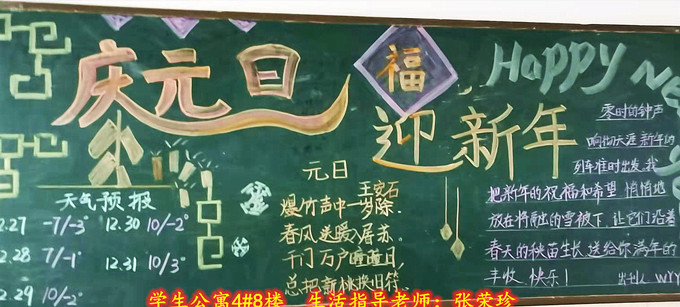 庆元旦
福
迎新年
Happy Ne
元日
王安石
爆竹声中一岁除
春风送暖入屠苏.
千门万户曈曈日,
总把新桃换旧符.
天气预报
2.27 -7/-3° 12.30 10/-2°
2.28 7/-1° 12.31 10/3°
2.29 10/-2°
零时的钟声
响彻天涯新年的
列车准时出发,我
把新年的祝福和希望悄悄地
放在将融的雪被下,让它们沿着
春天的秧苗生长送给你满年的
丰收,快乐! 出刊人 WYY
学生公寓4#8楼 生活指导老师：张荣珍